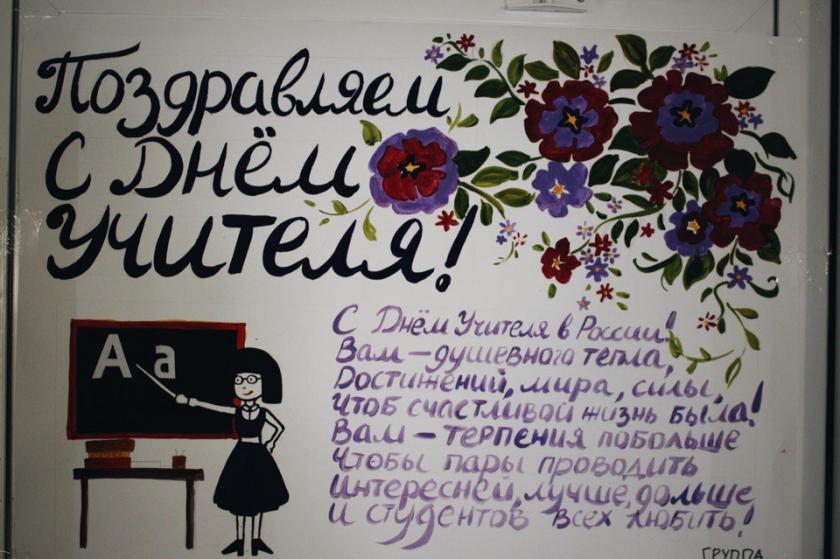 Поздравляем
С Днём
Учителя!
А а
С Днём Учителя в России!
Вам – душевного тепла,
Достижений, мира, силы,
Чтоб счастливой жизнь была!
Вам – терпения побольше
Чтобы пары проводить
Интересней, лучше, дольше
И студентов всех любить!
ГРУППА